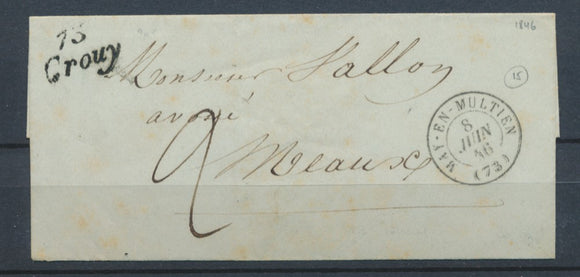 73
Crouy
1846
15
Monsieur Vallon
avoué
Meaux
2
MAY-EN-MULTIEN
8
JUIN
46
(73)